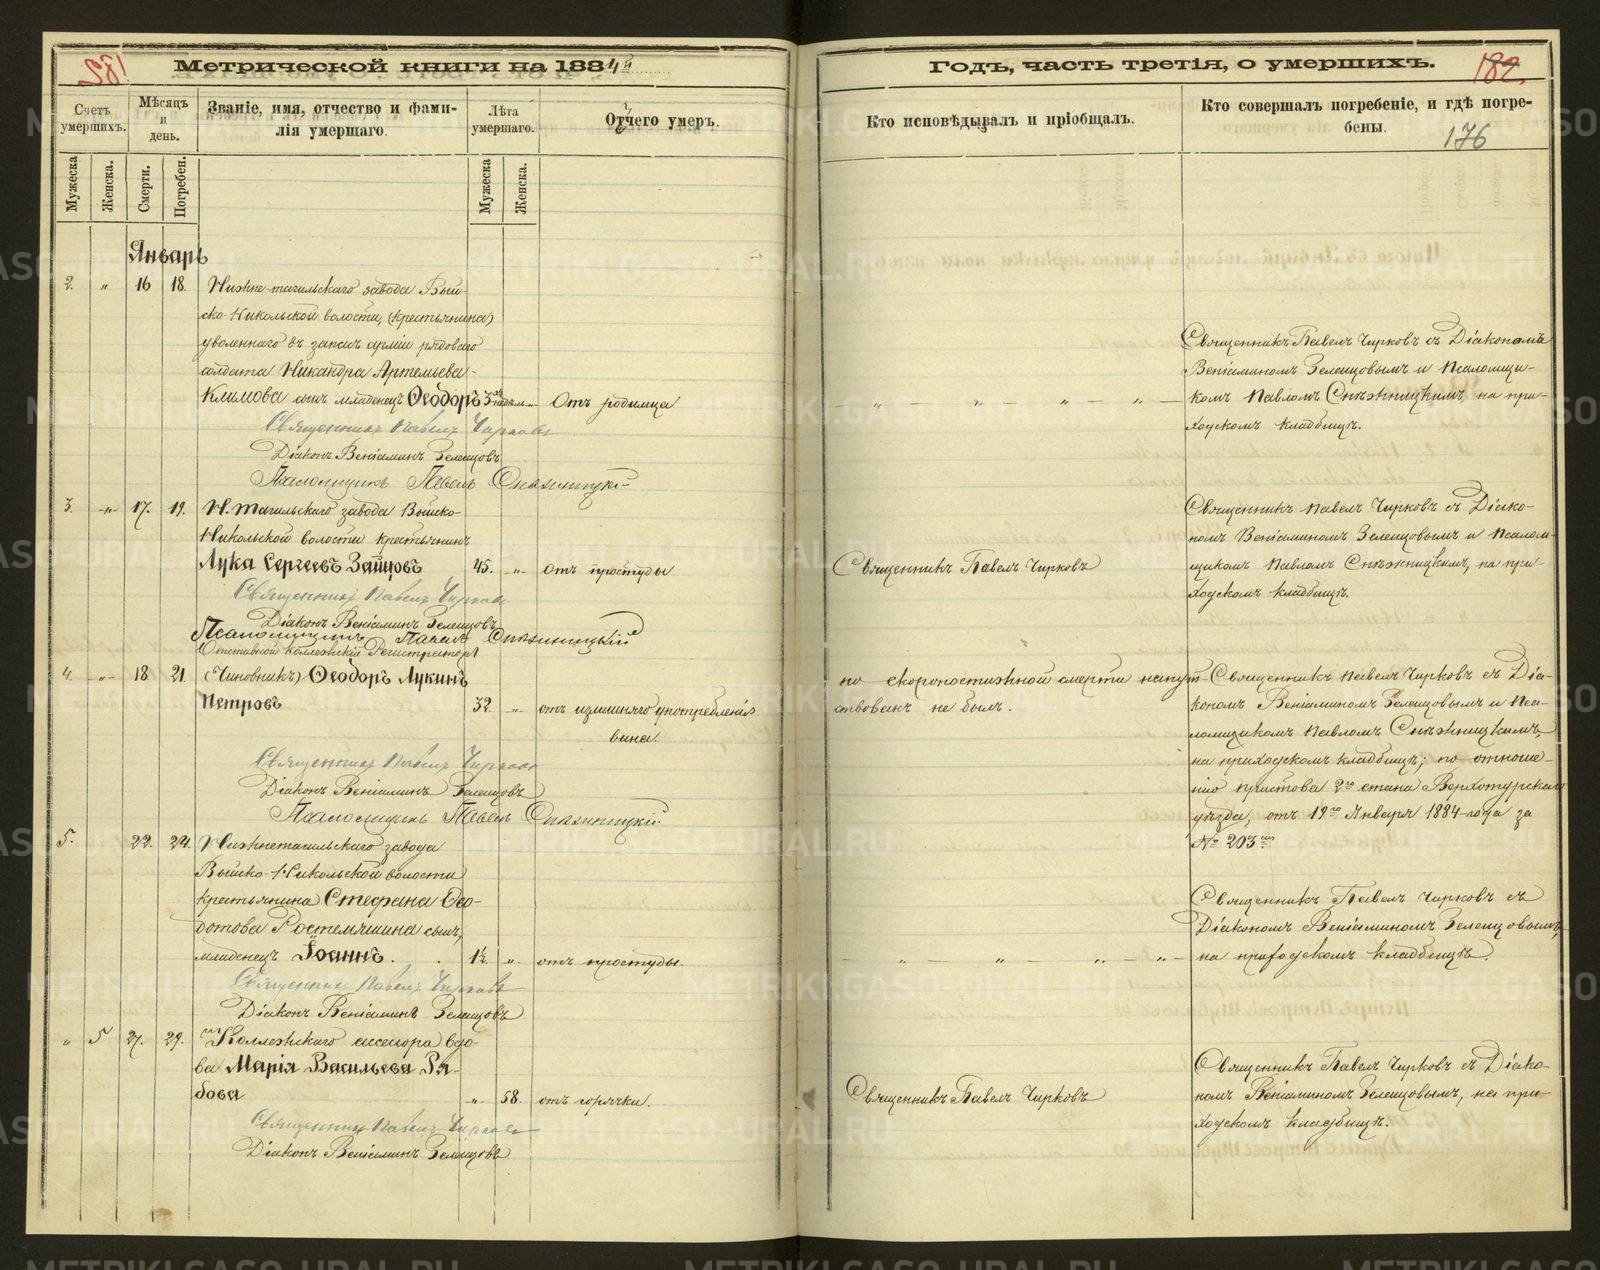 182.
Метрической книги на 1884й
Счетъ умершихъ.
Мѣсяцъ и день.
Званіе, имя, отчество и фами-
лія умершаго.
Лѣта умершаго.
Отчего умеръ.
Мужеска
Женска.
Смерти.
Погребен.
Мужеска
Женска.
Январь
2. " 16 18. Нижне-тагильскаго завода Вый-
ско-Никольской волости, (крестьянина)
уволеннаго въ запасъ арміи рядоваго
солдата Никандра Артемьева
Климова сынъ младенецъ Ѳеодоръ 3 недѣль " Отъ родимца
Священникъ Павелъ Чирковъ
Діаконъ Веніаминъ Зеленцовъ
Псаломщикъ Павелъ Снѣжницкій
3. " 17. 19. Н. Тагильскаго завода Выйско-
Никольской волости крестьянинъ
Лука Сергеевъ Зайцовъ 45. " отъ простуды
Священникъ Павелъ Чирковъ
Діаконъ Веніаминъ Зеленцовъ
Псаломщикъ Павелъ Снѣжницкій
Отставной Коллежскій Регистраторъ
4. " 18 21 (Чиновникъ) Ѳеодоръ Лукинъ
Петровъ 32. " отъ излишняго употребленія
вина.
Священникъ Павелъ Чирковъ
Діаконъ Веніаминъ Зеленцовъ
Псаломщикъ Павелъ Снѣжницкій
5. 22. 24. Нижнетагильскаго завода
Выйско-Никольской волости
крестьянина Стефана Ѳео-
дотова сынъ,
младенецъ Іоаннъ. 1½. " отъ простуды.
Священникъ Павелъ Чирковъ
Діаконъ Веніаминъ Зеленцовъ
" 5 27. 29. Коллежскаго ассесора вдо-
ва Марія Васильева Ря-
бова " 58. отъ горячки.
Священникъ Павелъ Чирковъ
Діаконъ Веніаминъ Зеленцовъ
Годъ, часть третія, о умершихъ.
182.
Кто исповѣдывалъ и пріобщалъ.
Кто совершалъ погребеніе, и гдѣ погре-
бены.
176
Священникъ Павелъ Чирковъ съ Діакономъ
Веніаминомъ Зеленцовымъ и Псаломщи-
" " " " комъ Павломъ Снѣжницкимъ, на при-
ходскомъ кладбищѣ.
Священникъ Павелъ Чирковъ съ Діако-
номъ Веніаминомъ Зеленцовымъ и Псалом-
Священникъ Павелъ Чирковъ
щикомъ Павломъ Снѣжницкимъ, на при-
ходскомъ кладбищѣ.
по скоропостижной смерти напут-
ствованъ не былъ.
Священникъ Павелъ Чирковъ съ Діа-
кономъ Веніаминомъ Зеленцовымъ и Пса-
ломщикомъ Павломъ Снѣжницкимъ,
на приходскомъ кладбищѣ; по отноше-
нію пристава 2го стана Верхотурскаго
уѣзда, отъ 19го Января 1884 года за
№ 203мъ
Священникъ Павелъ Чирковъ съ
Діакономъ Веніаминомъ Зеленцовымъ,
" " " " на приходскомъ кладбищѣ.
Священникъ Павелъ Чирковъ
Священникъ Павелъ Чирковъ съ Діако-
номъ Веніаминомъ Зеленцовымъ, на при-
ходскомъ кладбищѣ.
METRIKI.GASO-URAL.RU